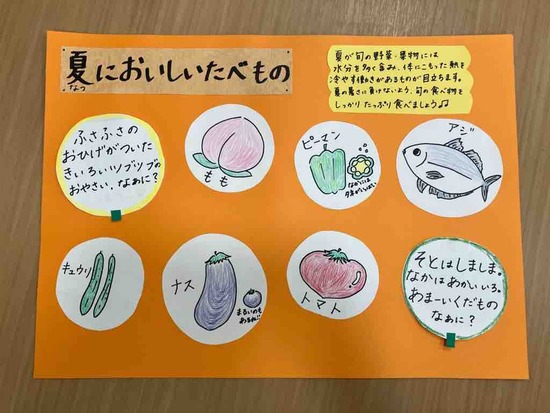 夏においしいたべもの
なつ
夏が旬の野菜・果物には
水分を多く含み、体にこもった熱を
冷やす働きがあるものが目立ちます。
夏の暑さに負けないよう、旬の食べ物を
しっかりたっぷり食べましょう♫
ふさふさの
おひげがついた
きいろいツブツブの
おやさい、なぁに?
もも
ピーマン
なかには
たねがいっぱい
アジ
キュウリ
ナス
まるいのも
あるね!!
トマト
そとはしましま。
なかはあかいいろ。
あまーいくだもの
なぁに?